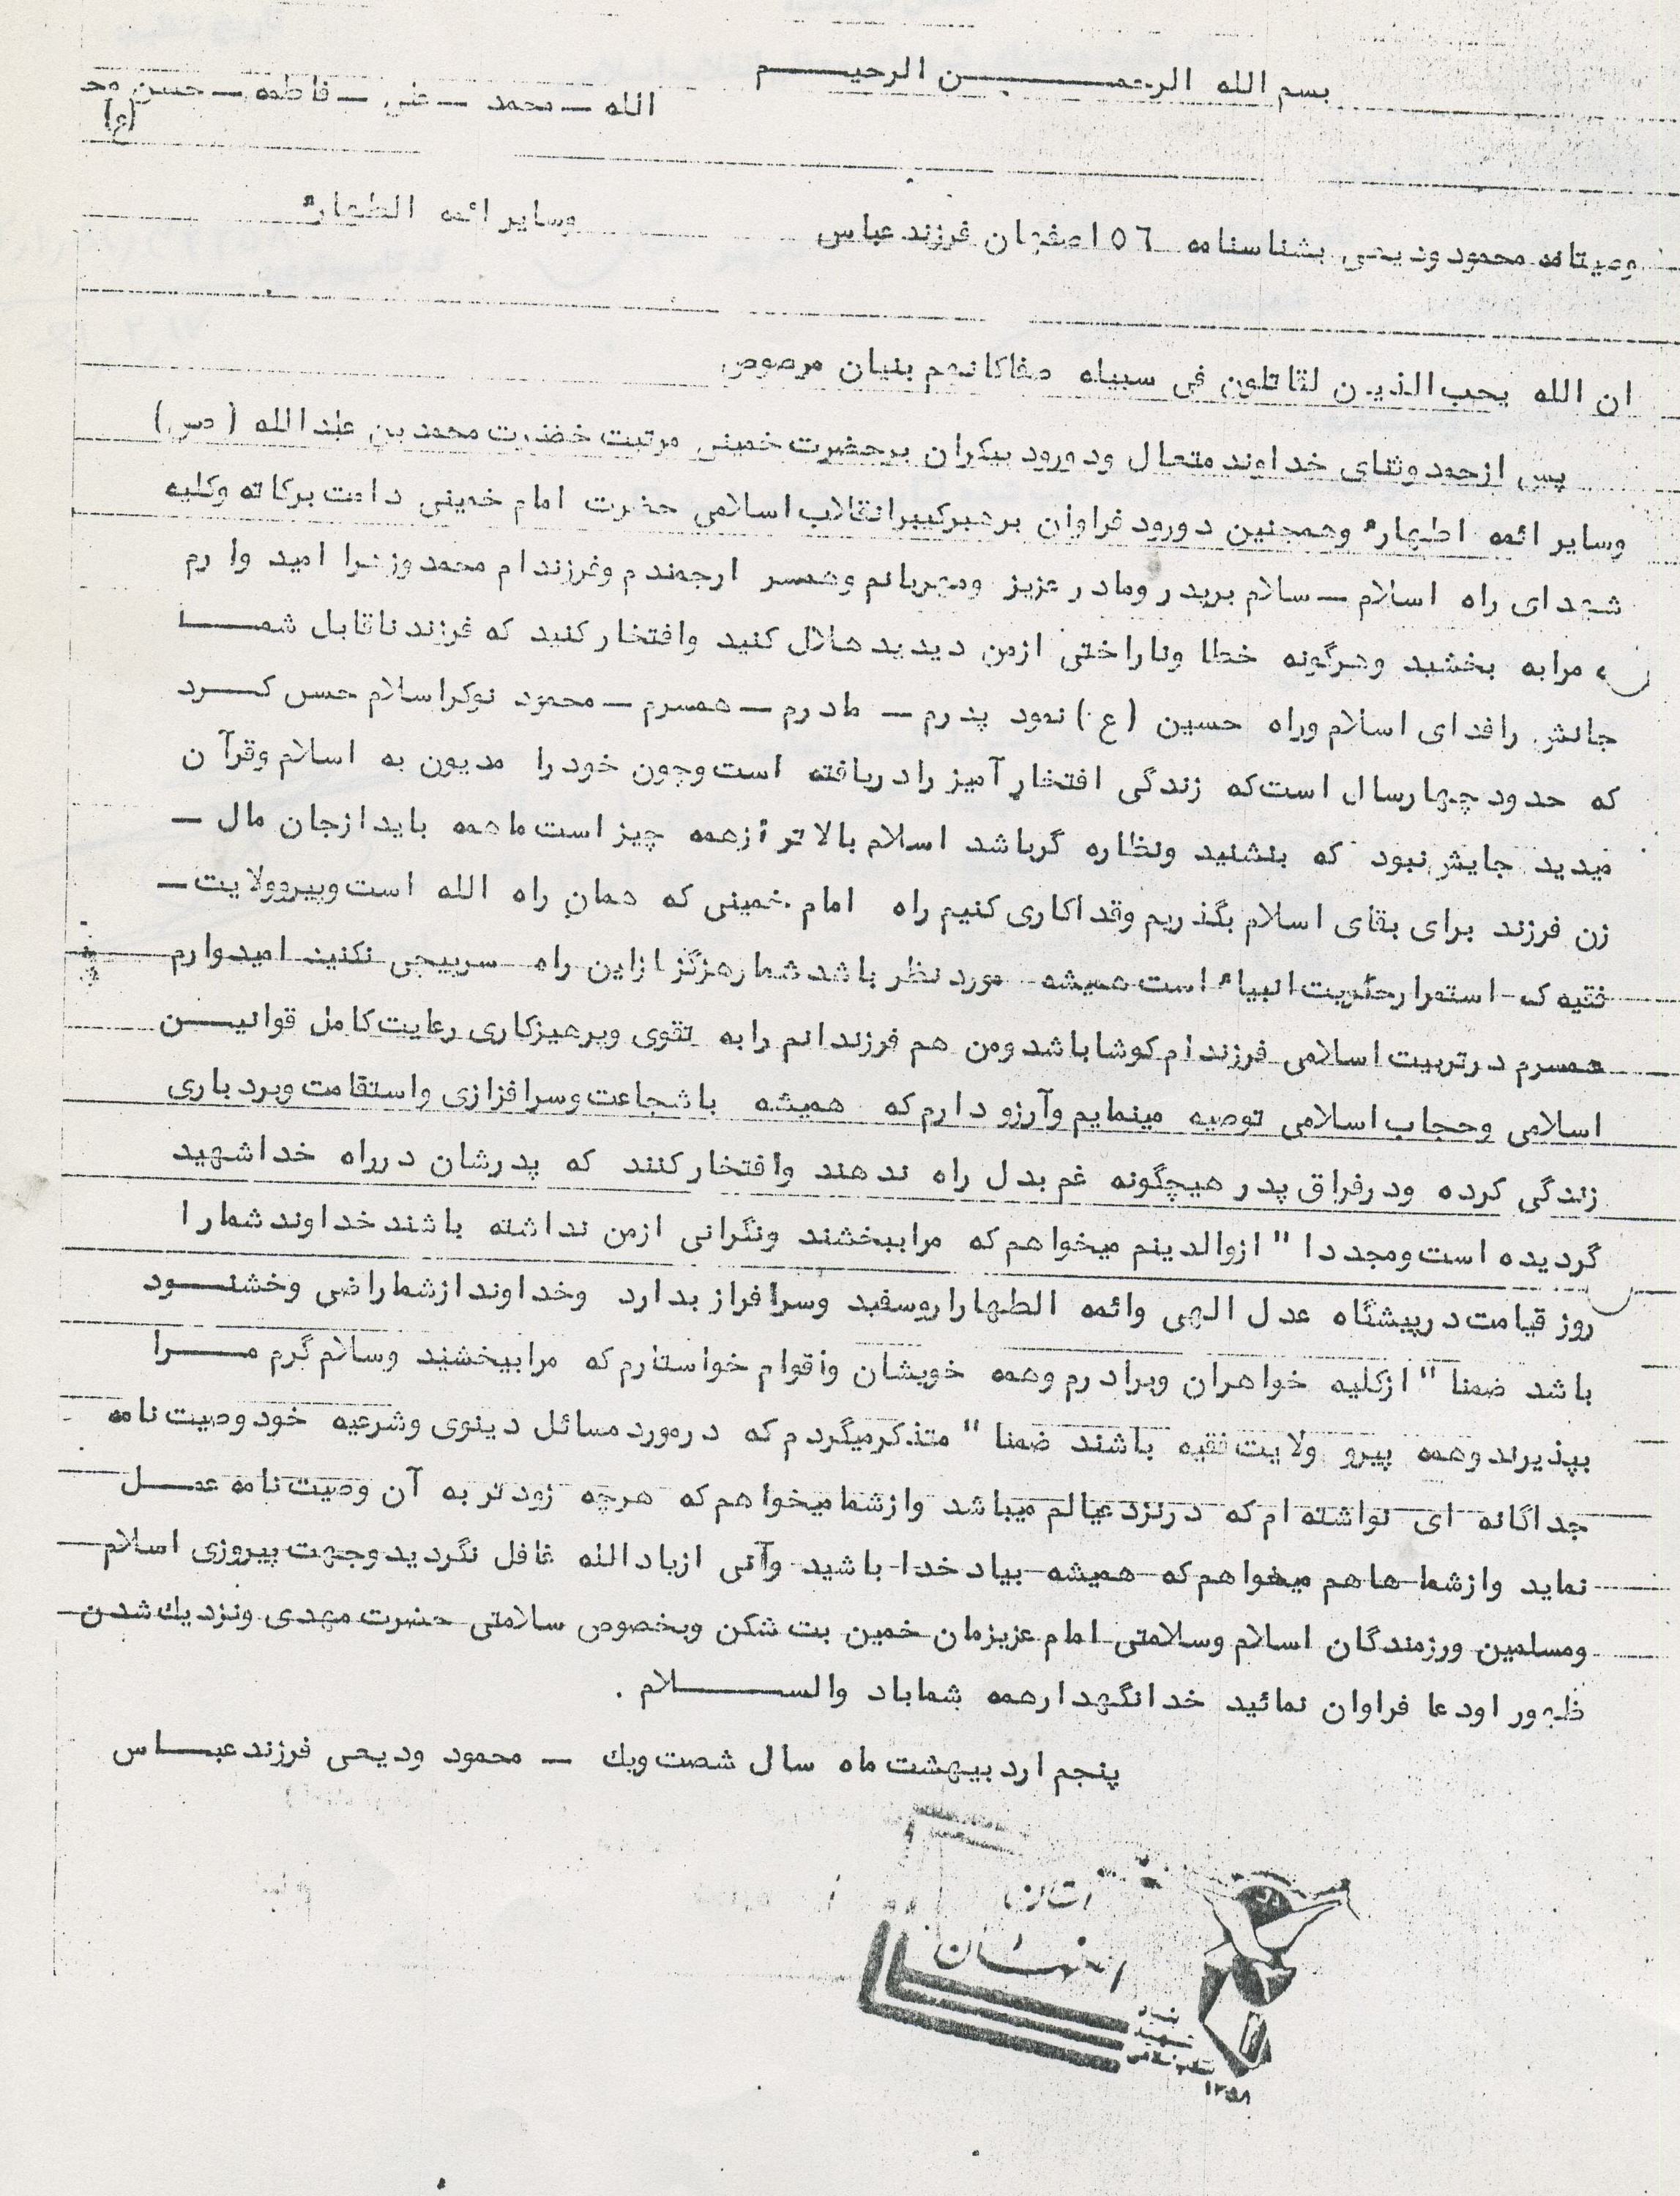 بسم الله الرحمـــــن الرحیـــم
الله ــ محمد ــ علی ــ فاطمه ــ حسن
(ع)
وسایر ائمه الطهارء
وصیتنامه محمود ودیعی بشناسنامه ٥٦ اصفهان فرزند عباس
ان الله یحب الذین لقاتلون فی سبیله صفاکانهم بنیان مرصوص
پس ازحمد وثنای خداوند متعال ودورود بیکران برحضرت خمینی مرتبت حضرت محمد بن عبدالله (ص)
وسایر ائمه اطهارء وهمچنین دورود فراوان برهبرکبیرانقلاب اسلامی حضرت امام خمینی دامت برکاته وکلیه
شهدای راه اسلام ــ سلام برپدر ومادر عزیز ومهربانم وهمسر ارجمندم وفرزندام محمد وزهرا امید وارم
مرابه بخشید وهرگونه خطا وناراختی ازمن دیدید هلال کنید وافتخارکنید که فرزند ناقابل شمـــا
جانش رافدای اسلام وراه حسین (ع) نمود پدرم ــ مادرم ــ همسرم ــ محمود نوکراسلام حس کـــرد
که حدود چهارسال است که زندگی افتخار آمیز رادریافته است وچون خود را مدیون به اسلام وقرآن
میدید جایش نبود که بنشنید ونظاره گرباشد اسلام بالاتر ازهمه چیز است ماهمه باید ازجان مال ــ
زن فرزند برای بقای اسلام بگذریم وفداکاری کنیم راه امام خمینی که همان راه الله است وپیروولایت ــ
فقیه که استمرارحکریت انبیاء است همیشه مورد نظر باشد شمارهزگز ازاین راه سرپیچی نکنید امیدوارم
همسرم درتربیت اسلامی فرزندام کوشا باشد ومن هم فرزندانم رابه تقوی وپرهیزکاری رعایت کامل قوانیـــن
اسلامی وحجاب اسلامی توصیه مینمایم وآرزو دارم که همیشه باشجاعت وسرافزازی واستقامت وبردباری
زندگی کرده ودرفراق پدر هیچگونه غم بدل راه ندهند وافتخارکنند که پدرشان درراه خدا شهید
گردیده است ومجددا " ازوالدینم میخواهم که مراببخشند ونگرانی ازمن نداشته باشند خداوند شمارا
روز قیامت درپیشگاه عدل الهی وائمه الطهارا روسفید وسرافراز بدارد وخداوند ازشماراضی وخشنـــود
باشد ضمنا " ازکلیه خواهران وبرادرم وهمه خویشان واقوام خواستارم که مرابیخشند وسلام گرم مـــرا
بپذیرند وهمه پیرو ولایت فقیه باشند ضمنا " متذکرمیگردم که درمورد مسائل دینوی وشرعیه خود وصیت نامه
جداگانه ای نواشته ام که درنزد عیالم میباشد وازشما میخواهم که هرچه زودتر به آن وصیت نامه عمـــل
نماید وازشما هاهم میخواهم که همیشه بیاد خدا باشید وآنی ازیاد الله غافل نگردید وجهت پیروزی اسلام
ومسلمین ورزمندگان اسلام وسلامتی امام عزیزمان خمین بت شکن وبخصوص سلامتی حضرت مهدی ونزدیك شدن
ظهور اودعا فراوان نمائید خدانگهدارهمه شماباد والســـــلام .
پنجم اردیبهشت ماه سال شصت ویك ــ محمود ودیعی فرزند عبـــاس
بنیاد
شهید
انقلاب اسلامی
۱۳۵۸